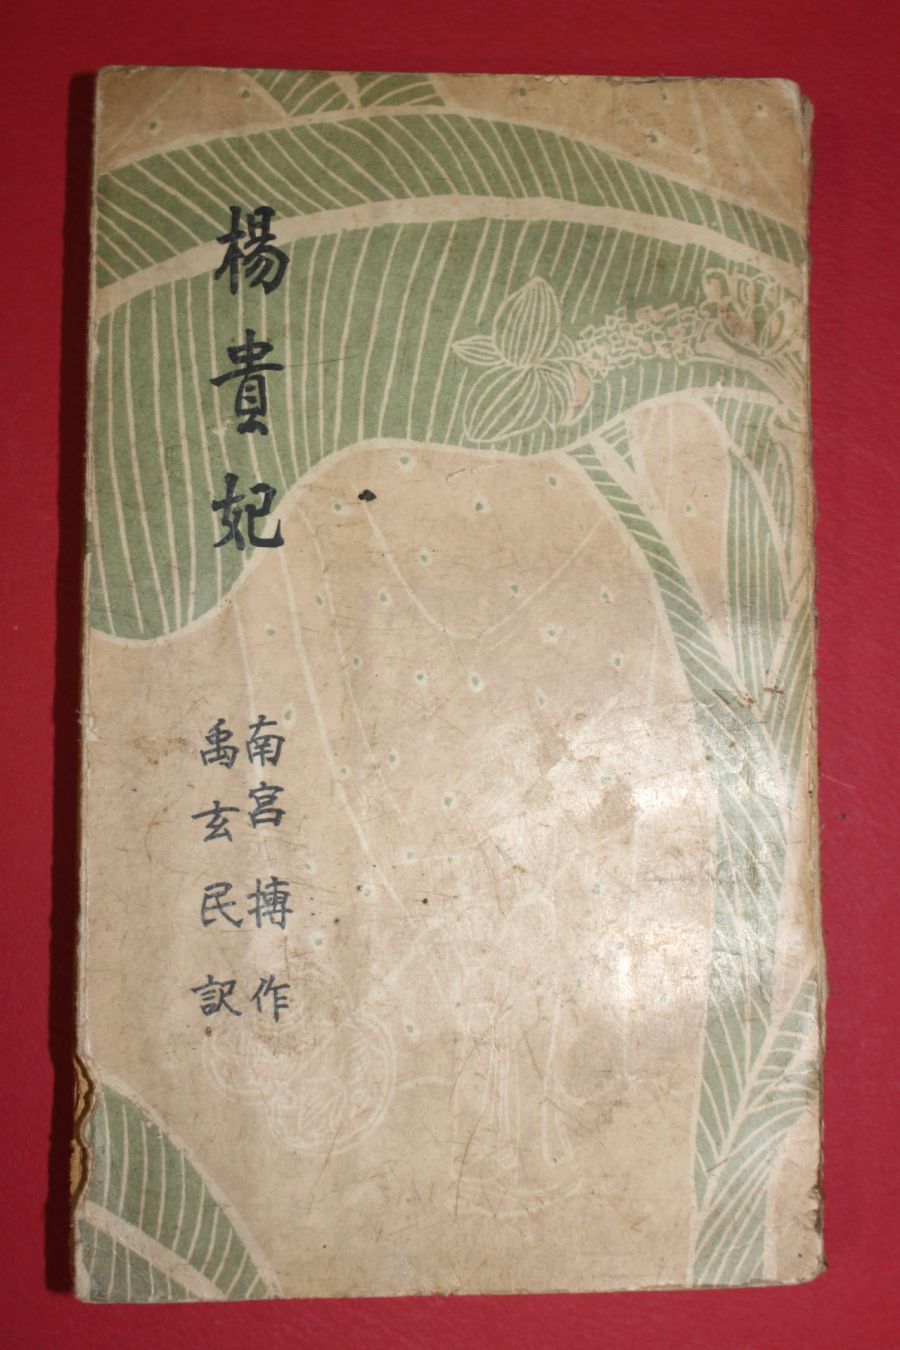 楊貴妃
南宮搏作
禹玄民訳